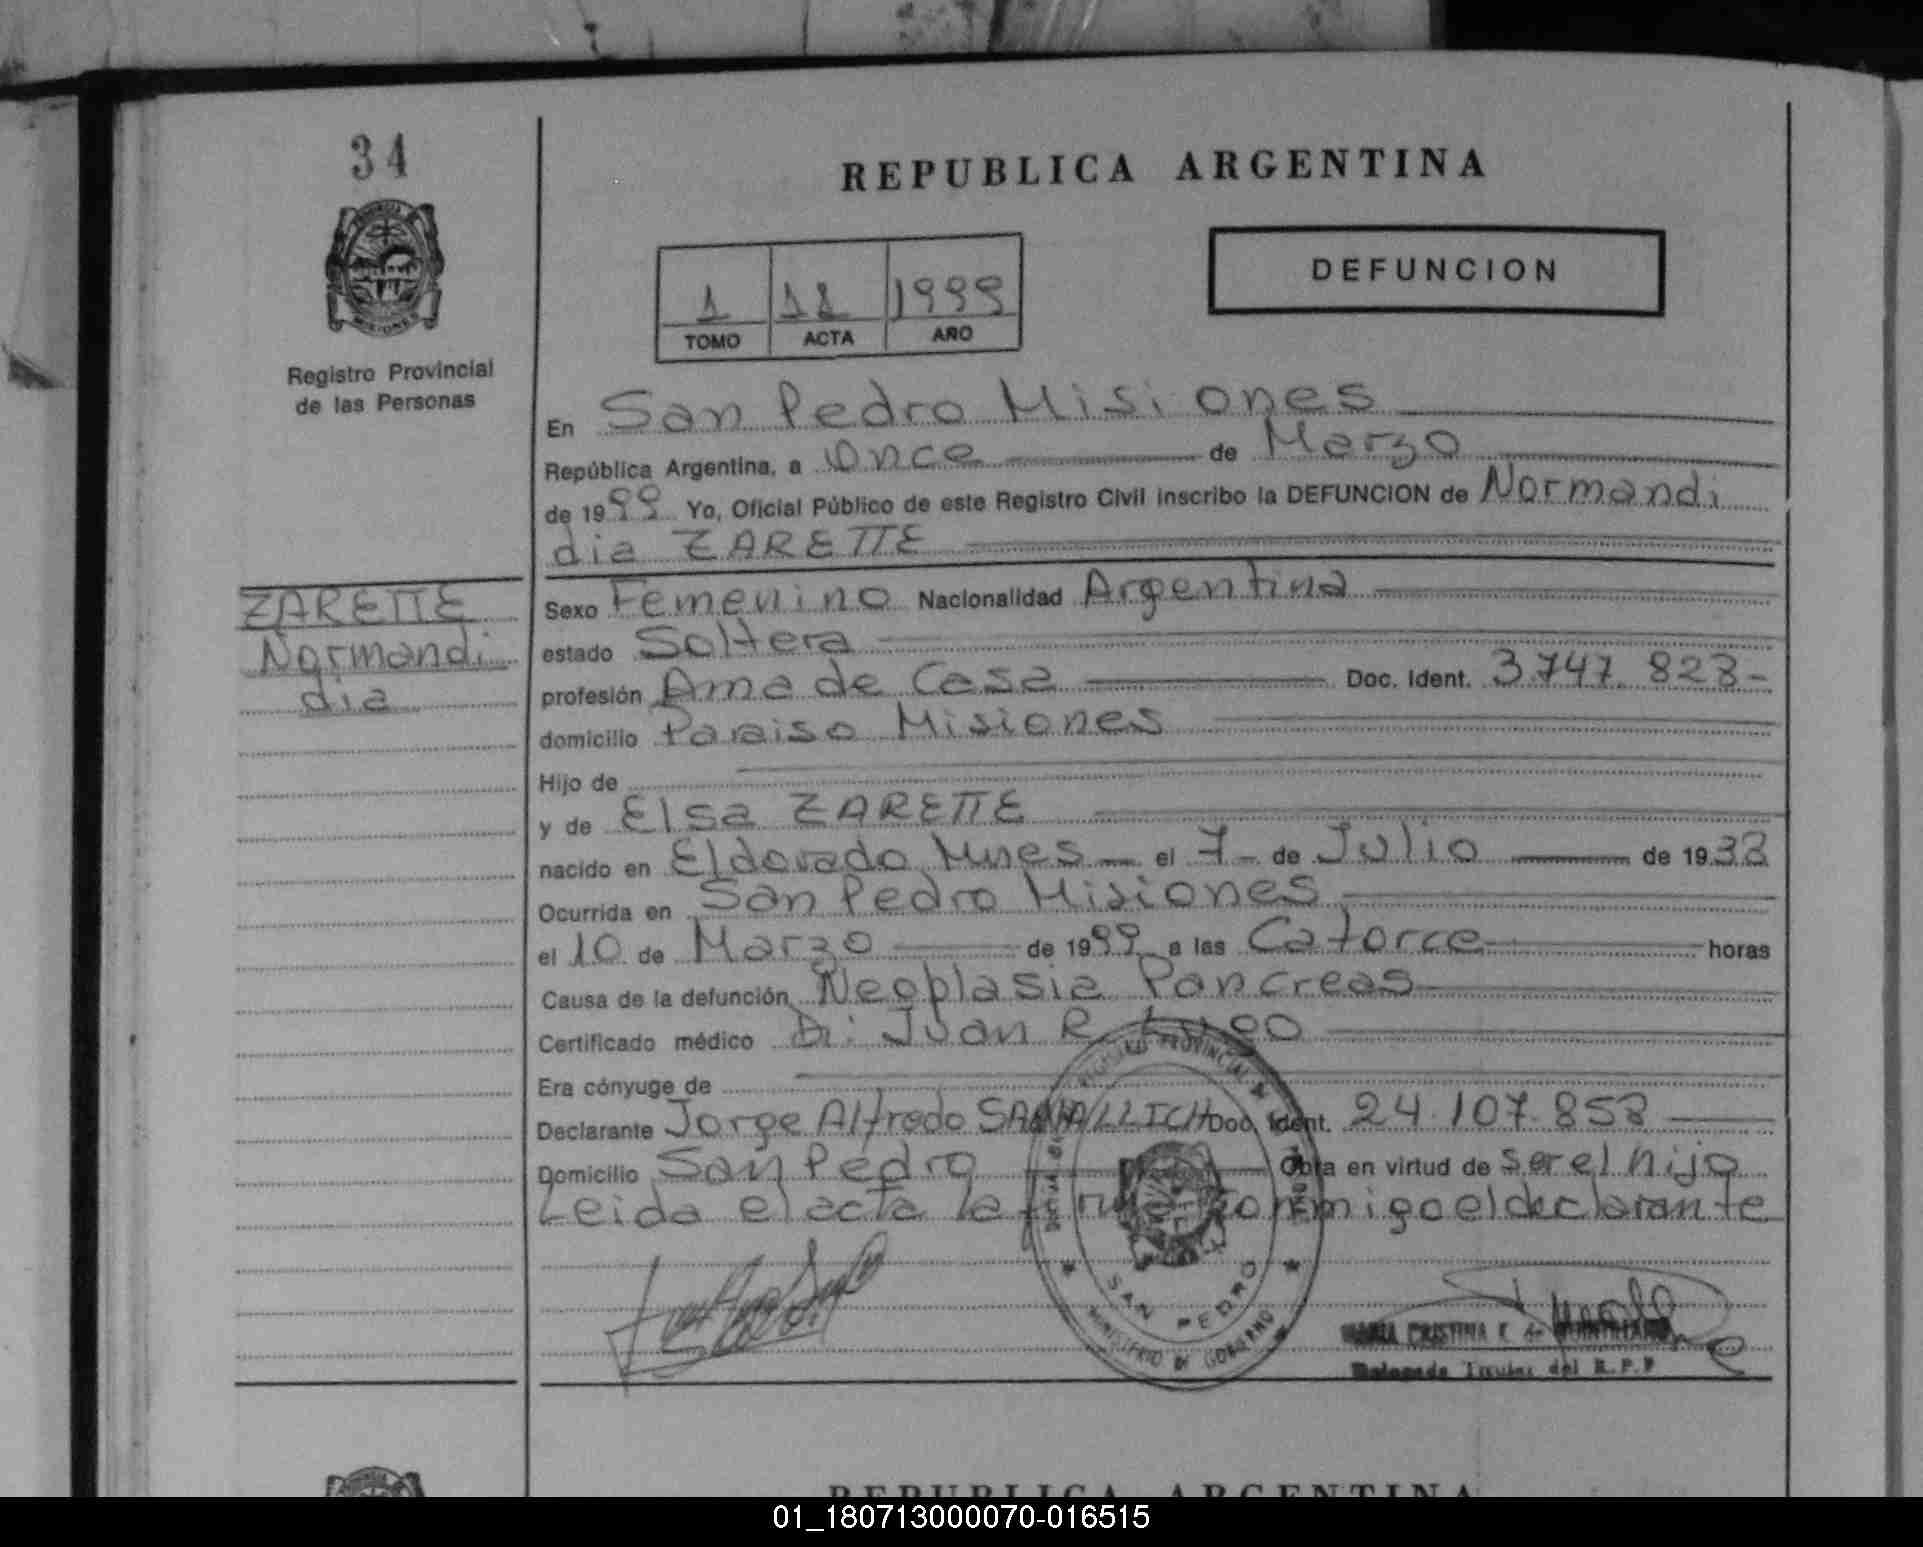 34
REPUBLICA ARGENTINA
DEFUNCION
1 11 1999
TOMO ACTA AÑO
Registro Provincial
de las Personas
En San Pedro Misiones
República Argentina, a Once de Marzo
de 1999 Yo, Oficial Público de este Registro Civil inscribo la DEFUNCION de Normandi
dia ZARETTE
ZARETTE
Normandi
dia
Sexo Femenino Nacionalidad Argentina
estado Soltera
profesión Ama de Casa Doc. Ident. 3.747.823-
domicilio Paraiso Misiones
Hijo de
y de Elsa ZARETTE
nacido en Eldorado Mnes el 7 de Julio de 1933
Ocurrida en San Pedro Misiones
el 10 de Marzo de 1999 a las Catorce horas
Causa de la defunción Neoplasia Pancreas
Certificado médico Dr. Juan R. Lugo
Era cónyuge de
Declarante Jorge Alfredo Doc. Ident. 24.107.853
Domicilio San Pedro Obra en virtud de ser el hijo
Leida el acta la firma conmigo el declarante
REGISTRO PROVINCIAL DE
SAN PEDRO
MINISTERIO DE GOBIERNO
MARIA CRISTINA
Delegada Titular del R.P.P
REPUBLICA ARGENTINA
01_180713000070-016515